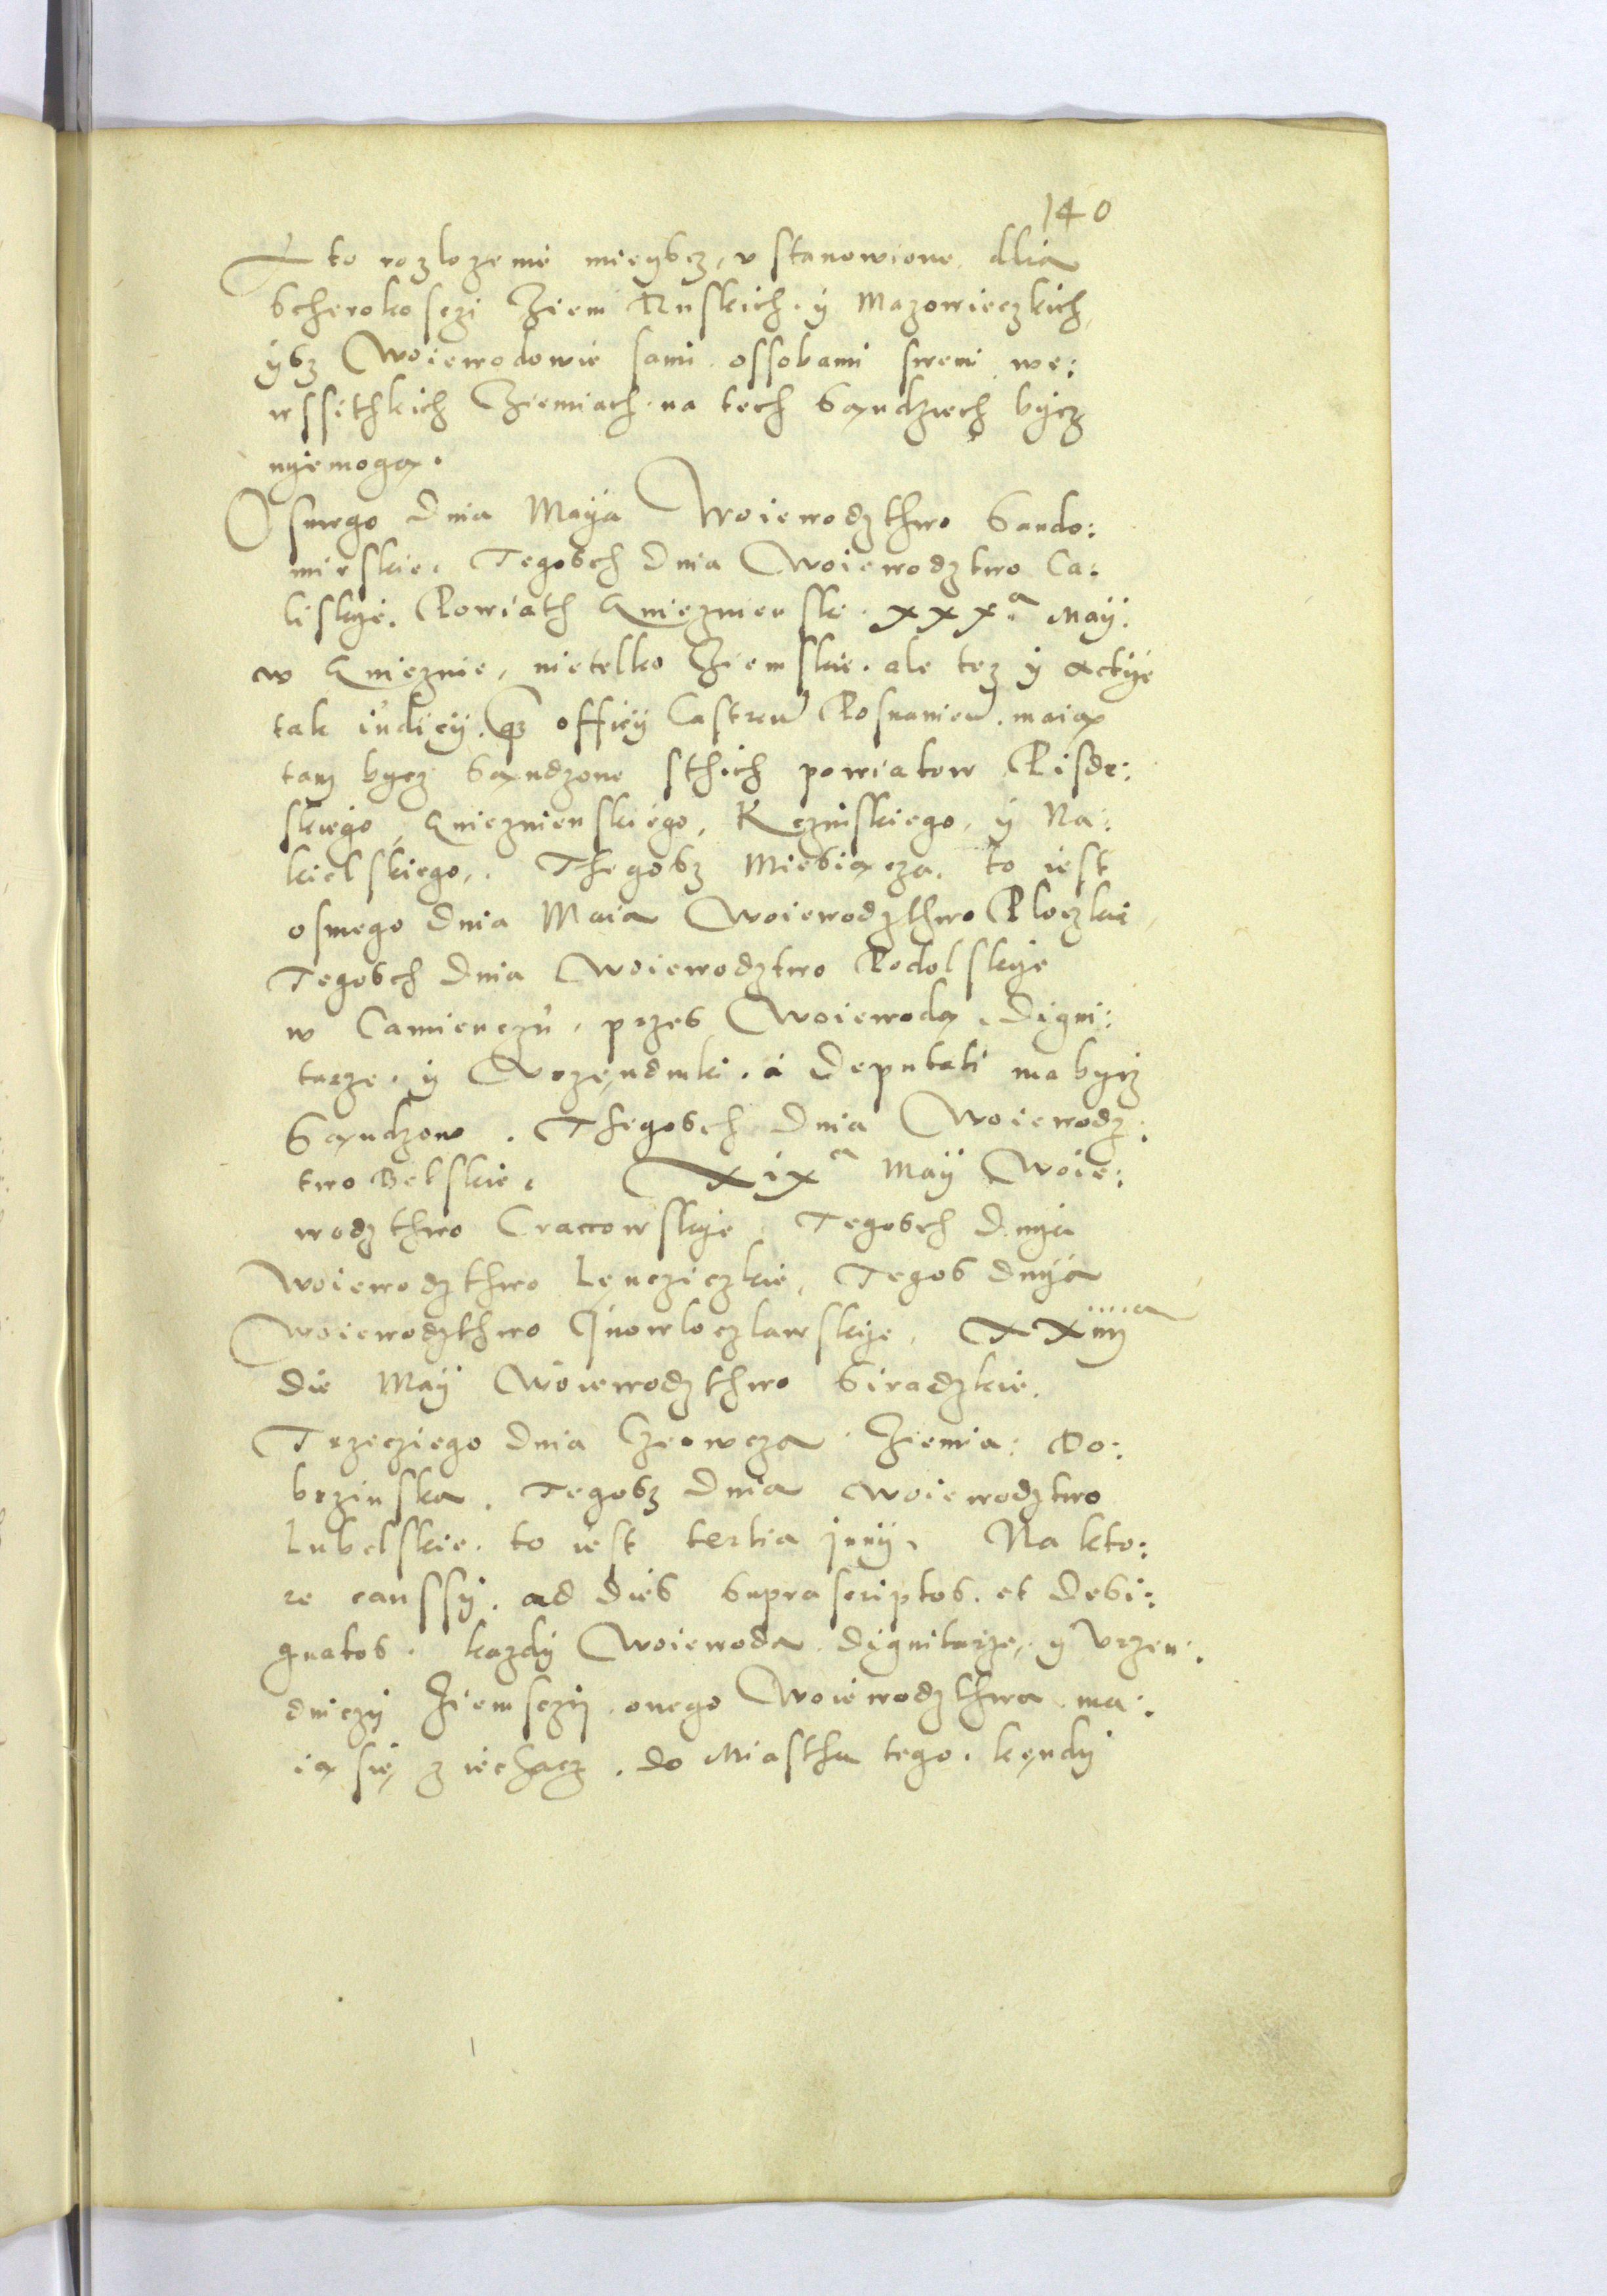 140
Y to rozlozenie mieyscz, vstanowiono dlia
scherokosczi Ziem Ruskich. y Mazowieczkich,
ysz Woiewodowie sami. ossobami swemi we:
wssithkich Ziemiach. na tech Sąndziech bycz
nyemogą.
Osmego Dnia Maya Woiewodzthwo Sando:
mirskie. Tegosch Dnia Woiewodztwo Ca:
liskye. Powiath Gnieznienski. xxxa. May.
w Gnieznie, nietelko Ziemskie. ale tez y actye
tak iudicij. offiicij Castren Posnanien. maią
tam bycz Sąndzone sthich powiatow Pisdr:
skiego, Gnieznienskiego, Kczniskiego, y Na:
kielskiego. Thegosz Miesiącza. to iest
osmego Dnia Maia Woiewodzthwo Ploczkie
Tegosch Dnia Woiewodztwo Podolskye
w Camienczu, przes Woiewodą. Digni:
tarze. y Vrzęndniki. a Deputati ma bycz
Sąndzono. Thegosch Dnia Woiewodz:
two Belskie. xixa May Woie:
wodzthwo Cracowskye. Tegosch Dnya
Woiewodzthwo Lęncziczkie, Tegos dnya
Woiewodzthwo Inowloczlawskye, XXiiija
die May Woiewodzthwo Siradzkie.
Trzecziego Dnia Czerwcza Ziemia: Do:
brzinska. Tegosz Dnia Woiewodztwo
Lubelskie. to iest tertia Junij. Na kto:
re caussy. ad dies suprascriptos. et desi:
gnatos. kazdy Woiewoda. Dignitarze, y Vrzen:
dniczy Ziemsczy. onego Woiewodzthwa. ma:
ią się ziechacz. do Miastha tego. kęndy